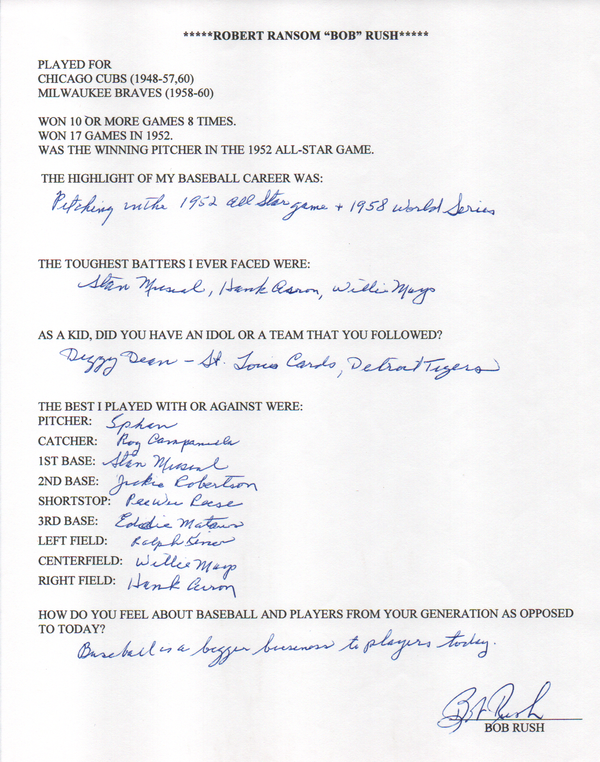 *****ROBERT RANSOM “BOB” RUSH*****
PLAYED FOR
CHICAGO CUBS (1948-57,60)
MILWAUKEE BRAVES (1958-60)
WON 10 OR MORE GAMES 8 TIMES.
WON 17 GAMES IN 1952.
WAS THE WINNING PITCHER IN THE 1952 ALL-STAR GAME.
THE HIGHLIGHT OF MY BASEBALL CAREER WAS:
Pitching in the 1952 all Star game + 1958 World Series
THE TOUGHEST BATTERS I EVER FACED WERE:
Stan Musial, Hank Aaron, Willie Mays
AS A KID, DID YOU HAVE AN IDOL OR A TEAM THAT YOU FOLLOWED?
Dizzy Dean - St. Louis Cards, Detroit Tigers
THE BEST I PLAYED WITH OR AGAINST WERE:
PITCHER: Sphan
CATCHER: Roy Campanela
1ST BASE: Stan Musial
2ND BASE: Jackie Robertson
SHORTSTOP: PeeWee Reese
3RD BASE: Eddie Mataws
LEFT FIELD: Ralph Kiner
CENTERFIELD: Willie Mays
RIGHT FIELD: Hank Aaron
HOW DO YOU FEEL ABOUT BASEBALL AND PLAYERS FROM YOUR GENERATION AS OPPOSED
TO TODAY?
Baseball is a bigger business to players today.
Bob Rush
BOB RUSH